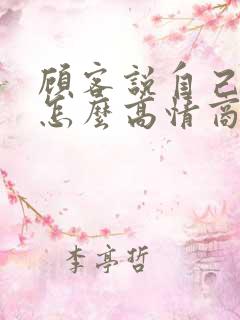 顧客說自己
怎麼高情商
李亭哲